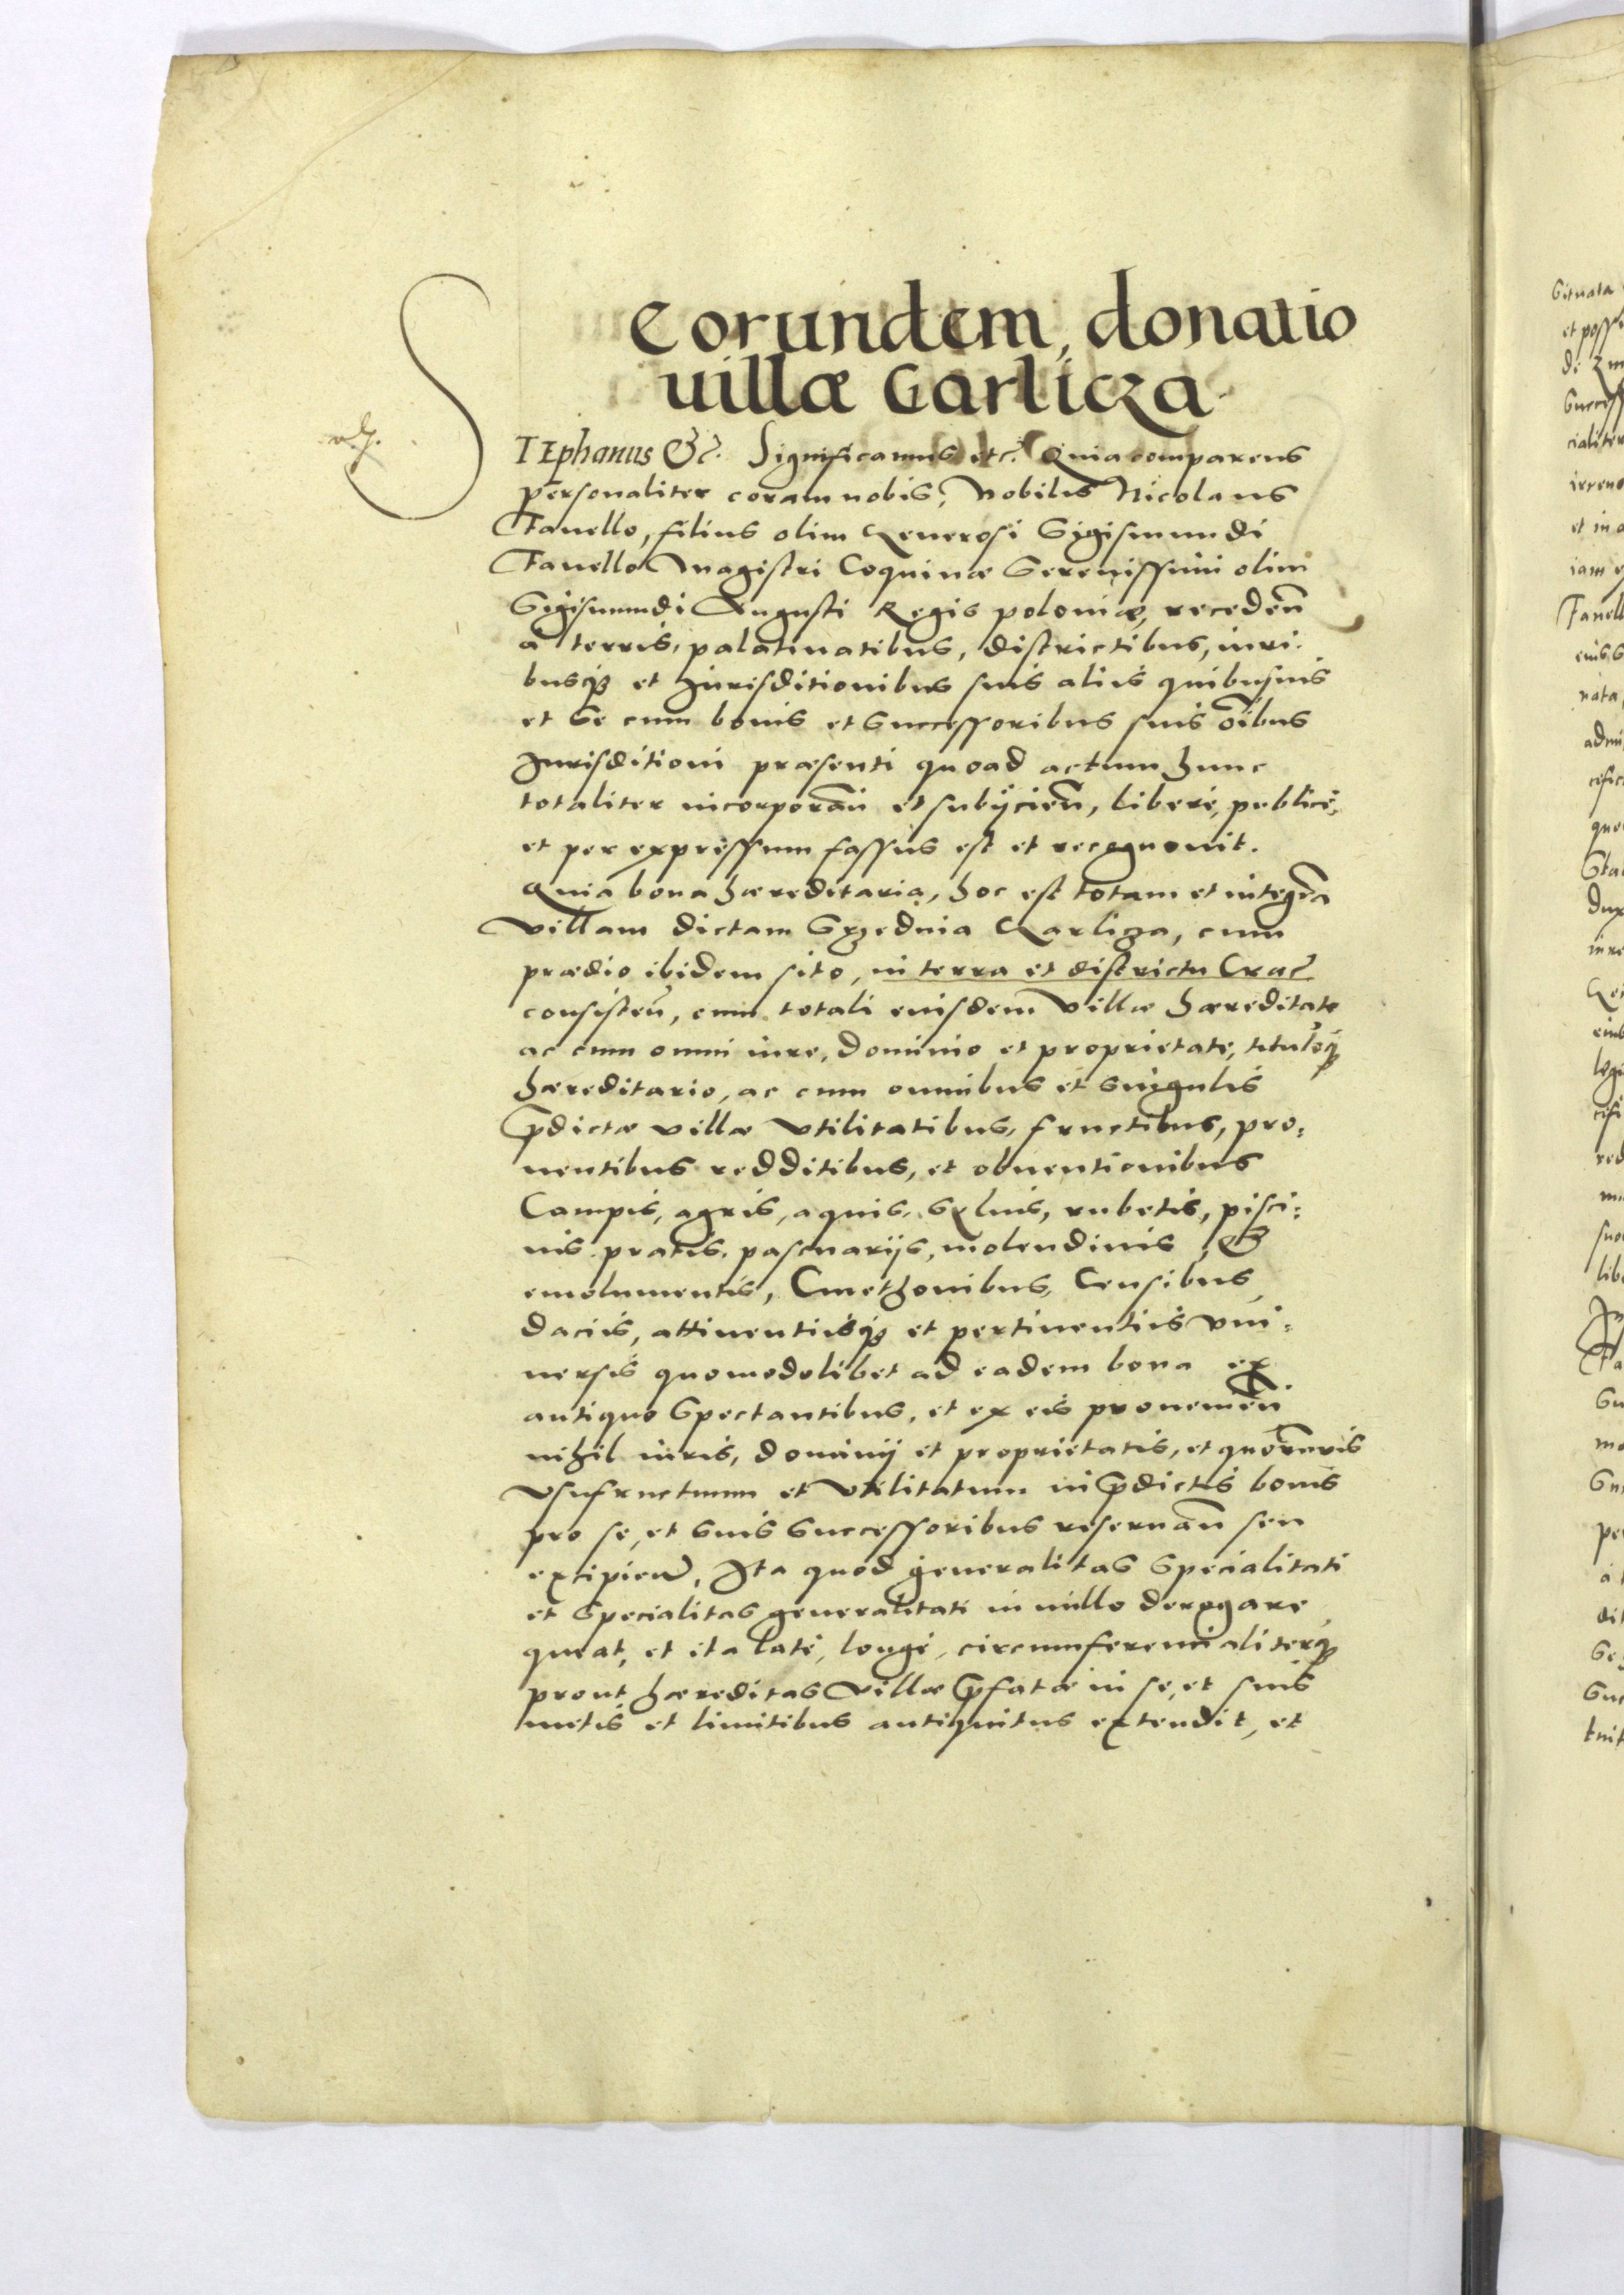 Eorundem, donatio
uillæ Garlicza
STEphanus &c. Significamus etc. Quia comparens
personaliter coram nobis, Nobilis Nicolaus
Fauello, filius olim Generosi Sigismundi
Fauello Magistri Coquinæ Serenissimi olim
Sigismundi Augusti Regis poloniæ, recedeñ
a terris, palatinatibus, districtibus, iuri-
busq₃ et Jurisditionibus suis aliis quibusuis
et se cum bonis et successoribus suis oîbus
Jurisditioni præsenti quoad actum hunc
totaliter incorporañ et subijcieñ, liberè, publicè,
et per expressum fassus est et recognouit.
Quia bona hæreditaria, hoc est totam et integrã
Villam dictam Srzednia Garlicza, cum
prædio ibidem sito, in terra et districtu Crac̃
consisteñ, cum totali eiusdem Villæ hæreditate
ac cum omni iure, dominio et proprietate, tituloq₃
hæreditario, ac cum omnibus et singulis
p̃dictæ villæ vtilitatibus, fructibus, pro-
uentibus redditibus, et obuentionibus
Campis, agris, aquis, syluis, rubetis, pisci-
nis pratis, pascuarijs, molendinis, &
emolumentis, Cmethonibus, Censibus,
daciis, attinentiisq₃ et pertinentiis vni-
uersis quomodolibet ad eadem bona ex
antiquo spectantibus, et ex eis prouenieñ
nihil iuris, dominij et proprietatis, et quorũuis
vsufructuum et vtilitatum in p̃dictis bonis
pro se, et suis successoribus reseruañ seu
excipieñ, Ita quod generalitas specialitati
et specialitas generalitati in nullo derogare
queat, et ita latè, longè, circumferencialiterq₃
prout hæreditas Villæ p̃fatæ in se, et suis
metis et limitibus antiquitus extendit, et